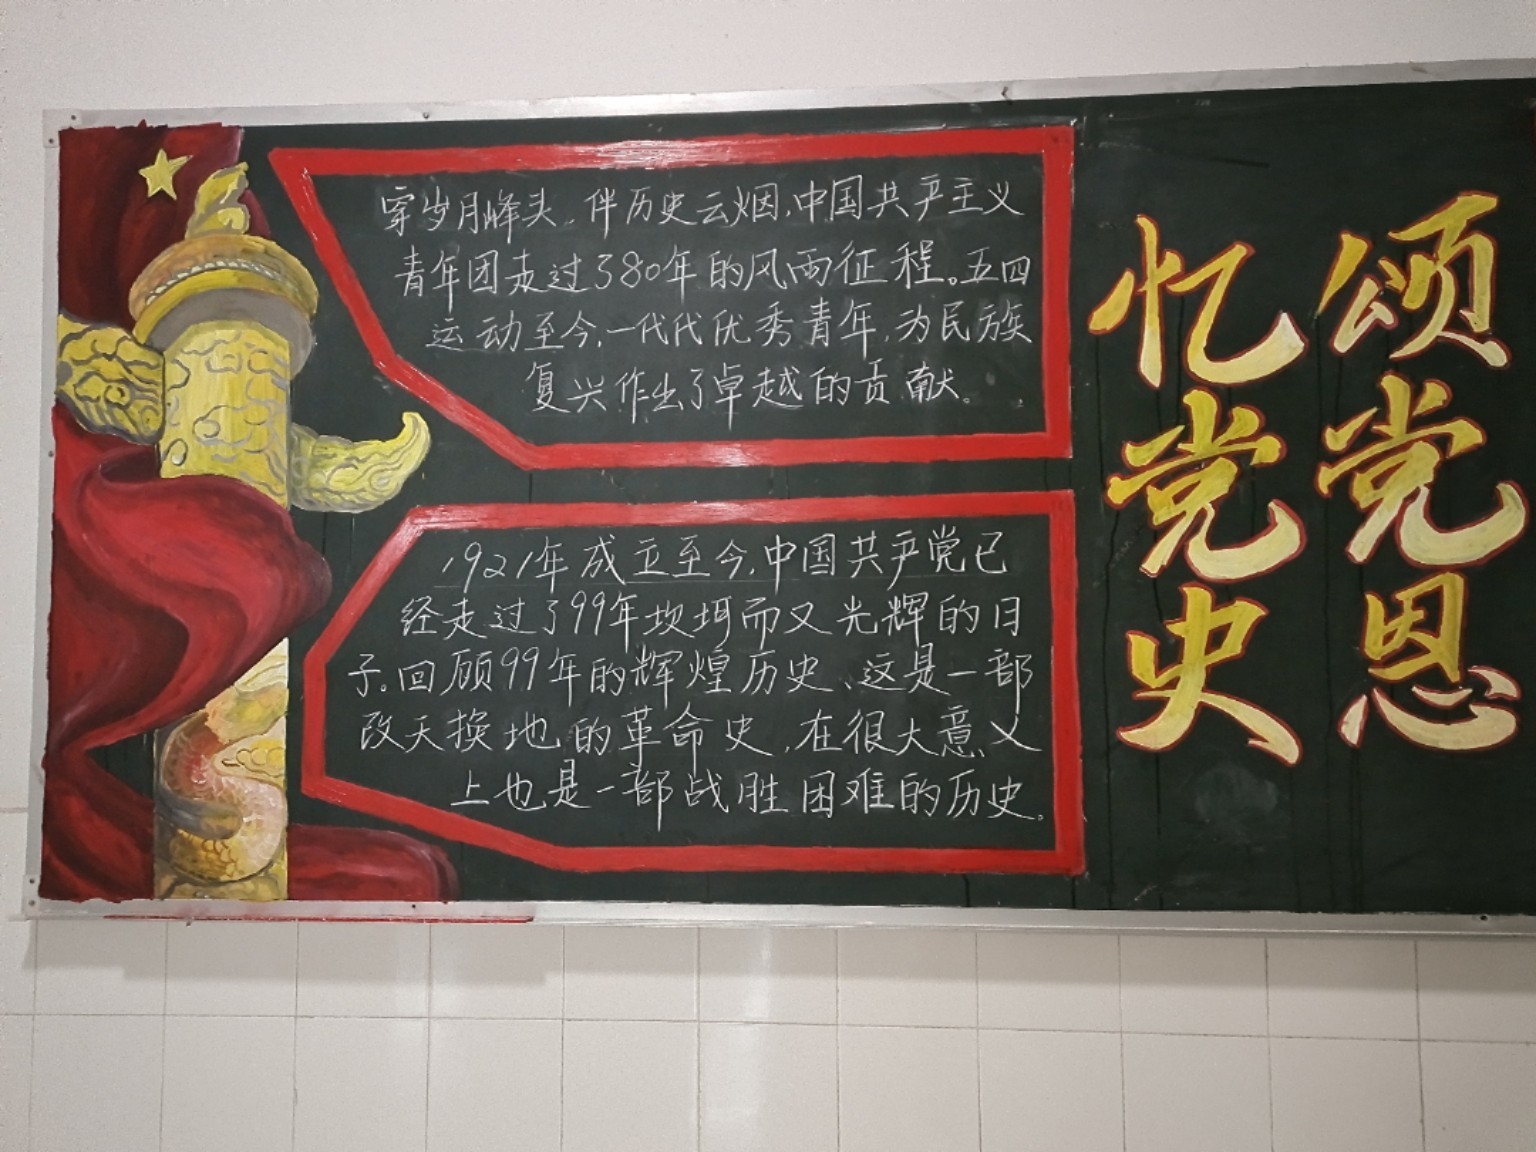 穿岁月峰头，伴历史云烟，中国共产主义
青年团走过了80年的风雨征程。五四
运动至今，一代代优秀青年，为民族
复兴作出了卓越的贡献。
1921年成立至今，中国共产党已
经走过了99年坎坷而又光辉的日
子。回顾99年的辉煌历史、这是一部
改天换地的革命史，在很大意义
上也是一部战胜困难的历史。
颂党恩
忆党史